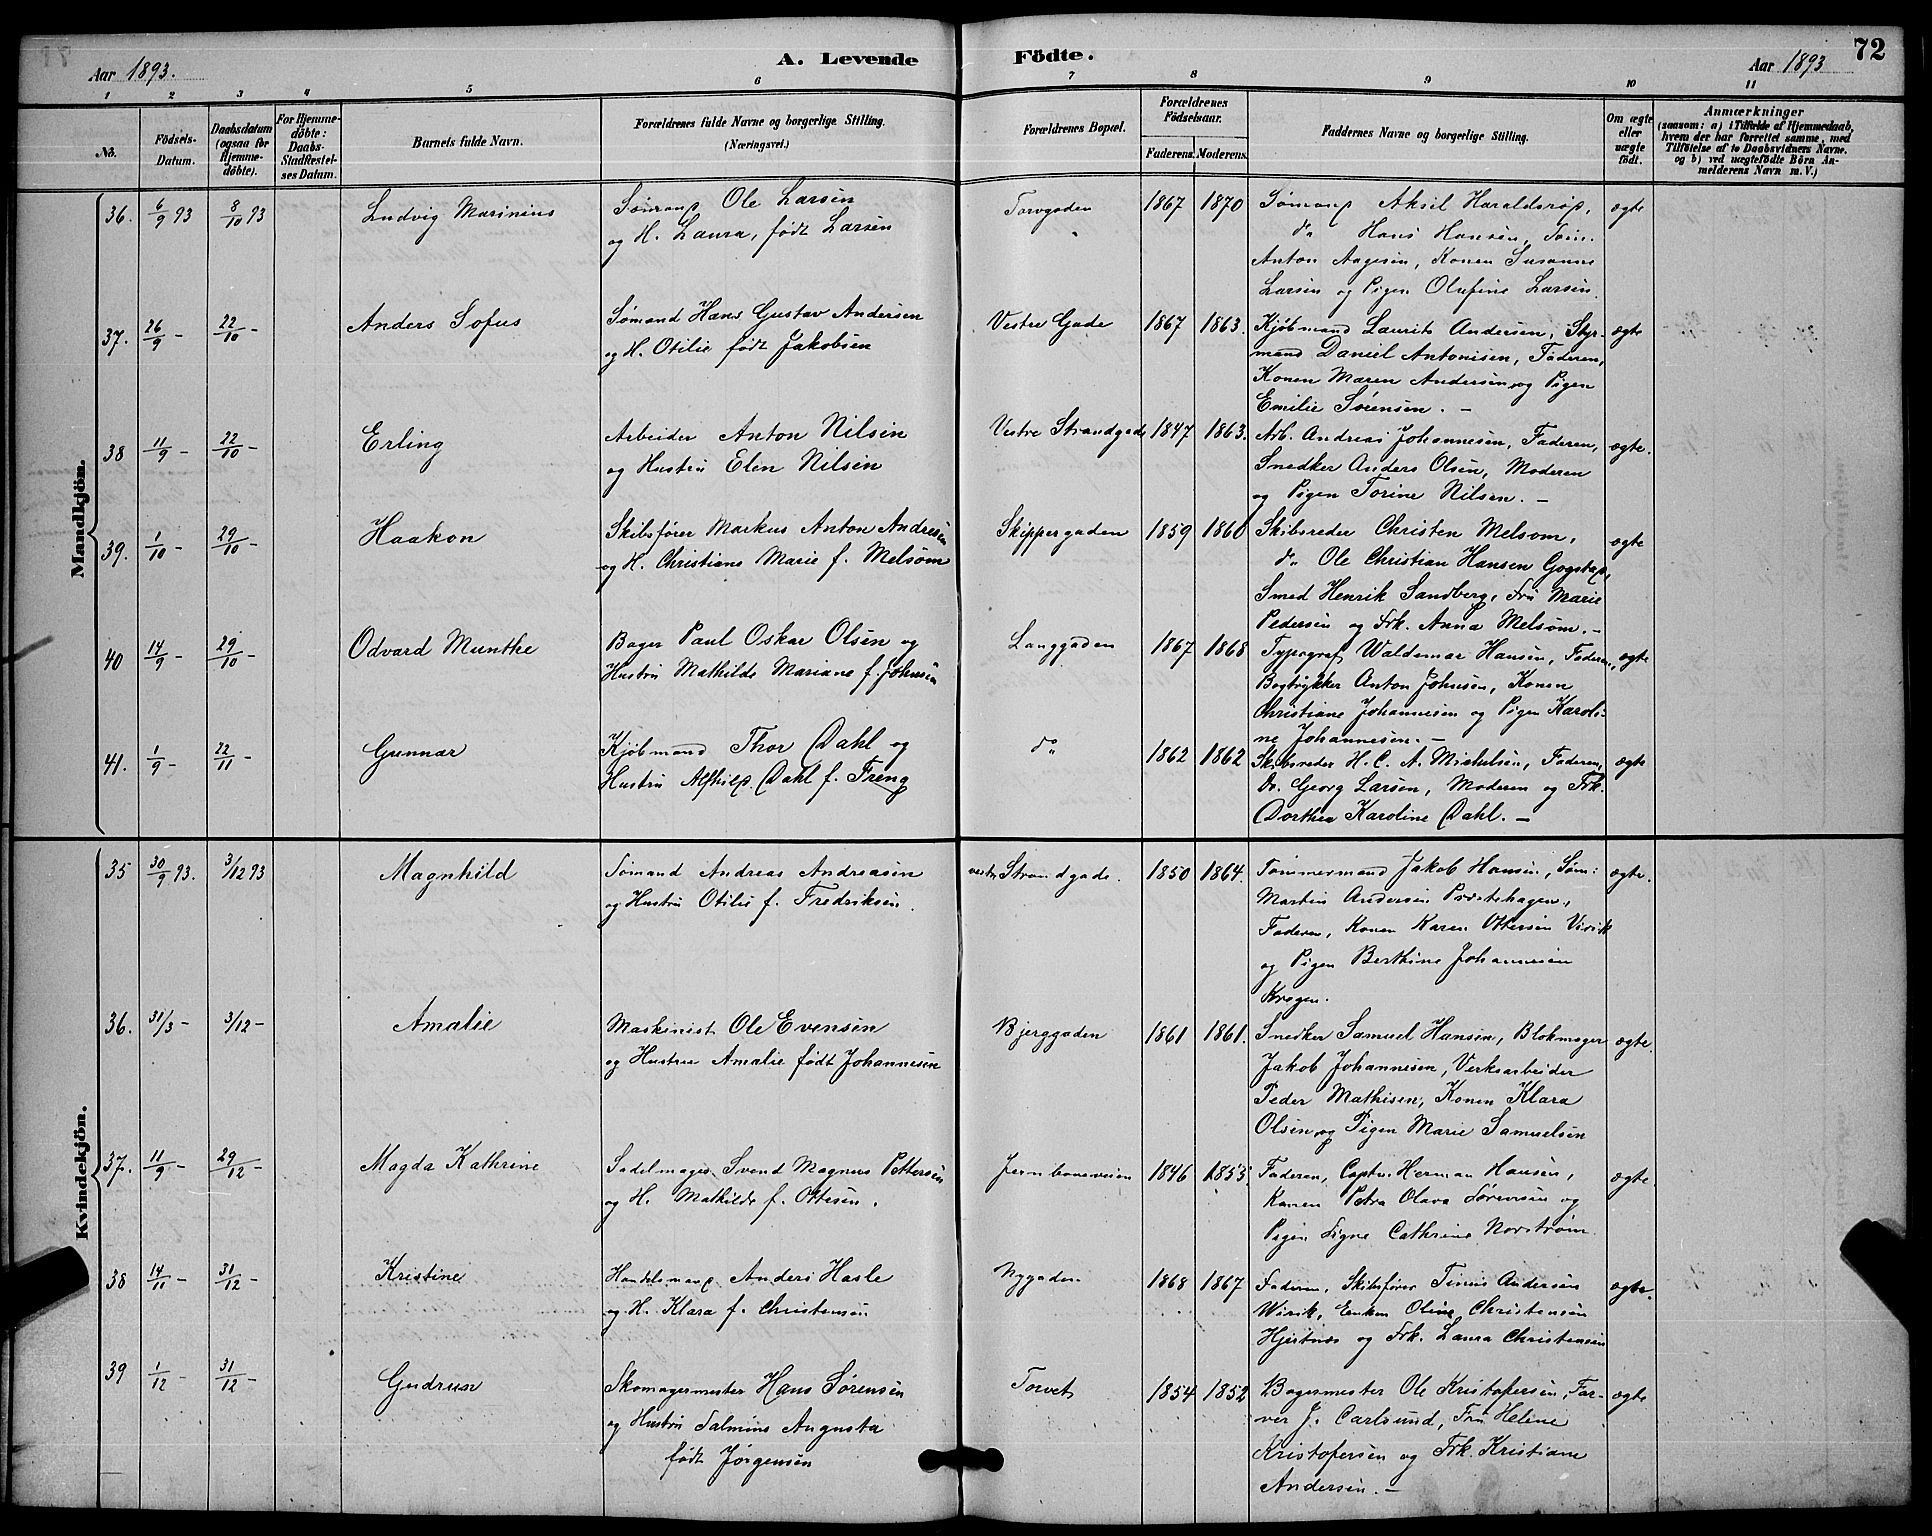 Aar 1893. A. Levende Födte. Aar 1893 72
1 2 3 4 5 6 7 8 9 10 11
No.
Födsels-Datum.
Daabsdatum (ogsaa for Hjemmedöbte).
For Hjemmedöbte: Daabs-Stadfæstelses Datum.
Barnets fulde Navn.
Forældrenes fulde Navne og borgerlige Stilling. (Næringsvei.)
Forældrenes Bopæl.
Forældrenes Födselsaar.
Faderens. Moderens.
Faddernes Navne og borgerlige Stilling.
Om ægte eller uægte födt.
Anmærkninger
(saasom: a) i Tilfælde af Hjemmedaab, hvem der har forrettet samme, med Tilföielse af to Daabsvidners Navne. og b) ved uægtefödte Börn Anmelderens Navn m. V.)
Mandkjön.
36. 6/9 93 8/10 93 Ludvig Marinius
Sømand Ole Larsen
og H. Laura, født Larsen
Torvgaden 1867 1870
Sømand Aksel Haraldsrøp,
do Hans Hansen, Søm.
Anton Aagesen, Konen Susanne
Larsen og Pigen Olufine Larsen.
ægte
37. 26/9 - 22/10 - Anders Sofus
Sømand Hans Gustav Andersen
og H. Otilie født Jakobsen
Vestre Gade 1867 1863.
Kjøbmand Laurits Andersen, Styr-
mand Daniel Antonisen, Faderen,
Konen Maren Andersen og Pigen
Emilie Sørensen. -
ægte
38 11/9 - 22/10 - Erling
Arbeider Anton Nilsen
og Hustru Elen Nilsen
Vestre Strandgade 1847 1863.
Arb. Andreas Johannesen, Faderen,
Snedker Anders Olsen, Moderen
og Pigen Torine Nilsen. -
ægte.
39. 1/10 - 29/10 - Haakon
Skibsfører Markus Anton Andresen
og H. Christiane Marie f. Melsom
Skippergaden 1859 1860
Skibsreder Christen Melsom,
do Ole Christian Hansen Gogstap,
Smed Henrik Sandberg, Fru Marie
Pedersen og Frk. Anna Melsom. -
ægte
40 14/9 - 29/10 - Odvard Munthe
Bager Paul Oskar Olsen og
Hustru Mathilde Mariane f. Johnsen
Langgaden 1867 1868
Typograf Waldemar Hansen, Faderen,
Bogtrykker Anton Johnsen, Konen
Christiane Johannesen og Pigen Karoli-
ne Johannesen. -
ægte
41. 1/9 - 22/11 - Gunnar
Kjøbmand Thor Dahl og
Hustru Alfhilp Dahl f. Freng
do 1862 1862
Skibsreder H. C. A. Michelsen, Faderen,
Dr. Georg Larsen, Moderen og Frk.
Dorthea Karoline Dahl. -
ægte
Kvindekjön.
35 30/9 93. 3/12 93 Magnhild
Sømand Andreas Andreasen
og Hustru Otilie f. Fredriksen.
vestre Strandgade. 1850 1864.
Tømmermand Jakob Hansen, Søm:
Martin Andersen Prestehagen,
Faderen, Konen Karen Ottersen Virik
og Pigen Berthine Johannesen
Krogen.
ægte.
36. 31/3 - 3/12 - Amalie
Maskinist Ole Evensen
og Hustru Amalie født Johannesen
Bjerggaden 1861 1861.
Snedker Samuel Hansen, Blokmager
Jakob Johannesen, Verksarbeider
Peder Mathisen, Konen Klara
Olsen og Pigen Marie Samuelsen
ægte.
37. 11/9 - 29/12 - Magda Kathrine
Sadelmager Svend Magnus Pettersen
og H. Mathilde f. Ottesen.
Jernbaneveien 1846 1853.
Faderen, Captn. Herman Hansen,
Konen Petra Olava Sørensen og
Pigen Signe Cathrine Norstrøm
ægte.
38 14/11 - 31/12 - Kristine
Handelsmand Anders Hasle
og H. Klara f. Christensen
Nygaden 1868 1867
Faderen, Skibsfører Tinius Andersen
Wirik, Enken Oline Christensen
Hjertnes og Frk. Laura Christensen
ægte.
39 1/12 - 31/12 - Gudrun
Skomagermester Hans Sørensen
og Hustru Salmine Augusta
født Jørgensen
Torvet 1854 1852
Bagermester Ole Kristofersen, Far-
ver J. Carlsund, Fru Helene
Kristofersen og Frk. Kristiane
Andersen. -
ægte